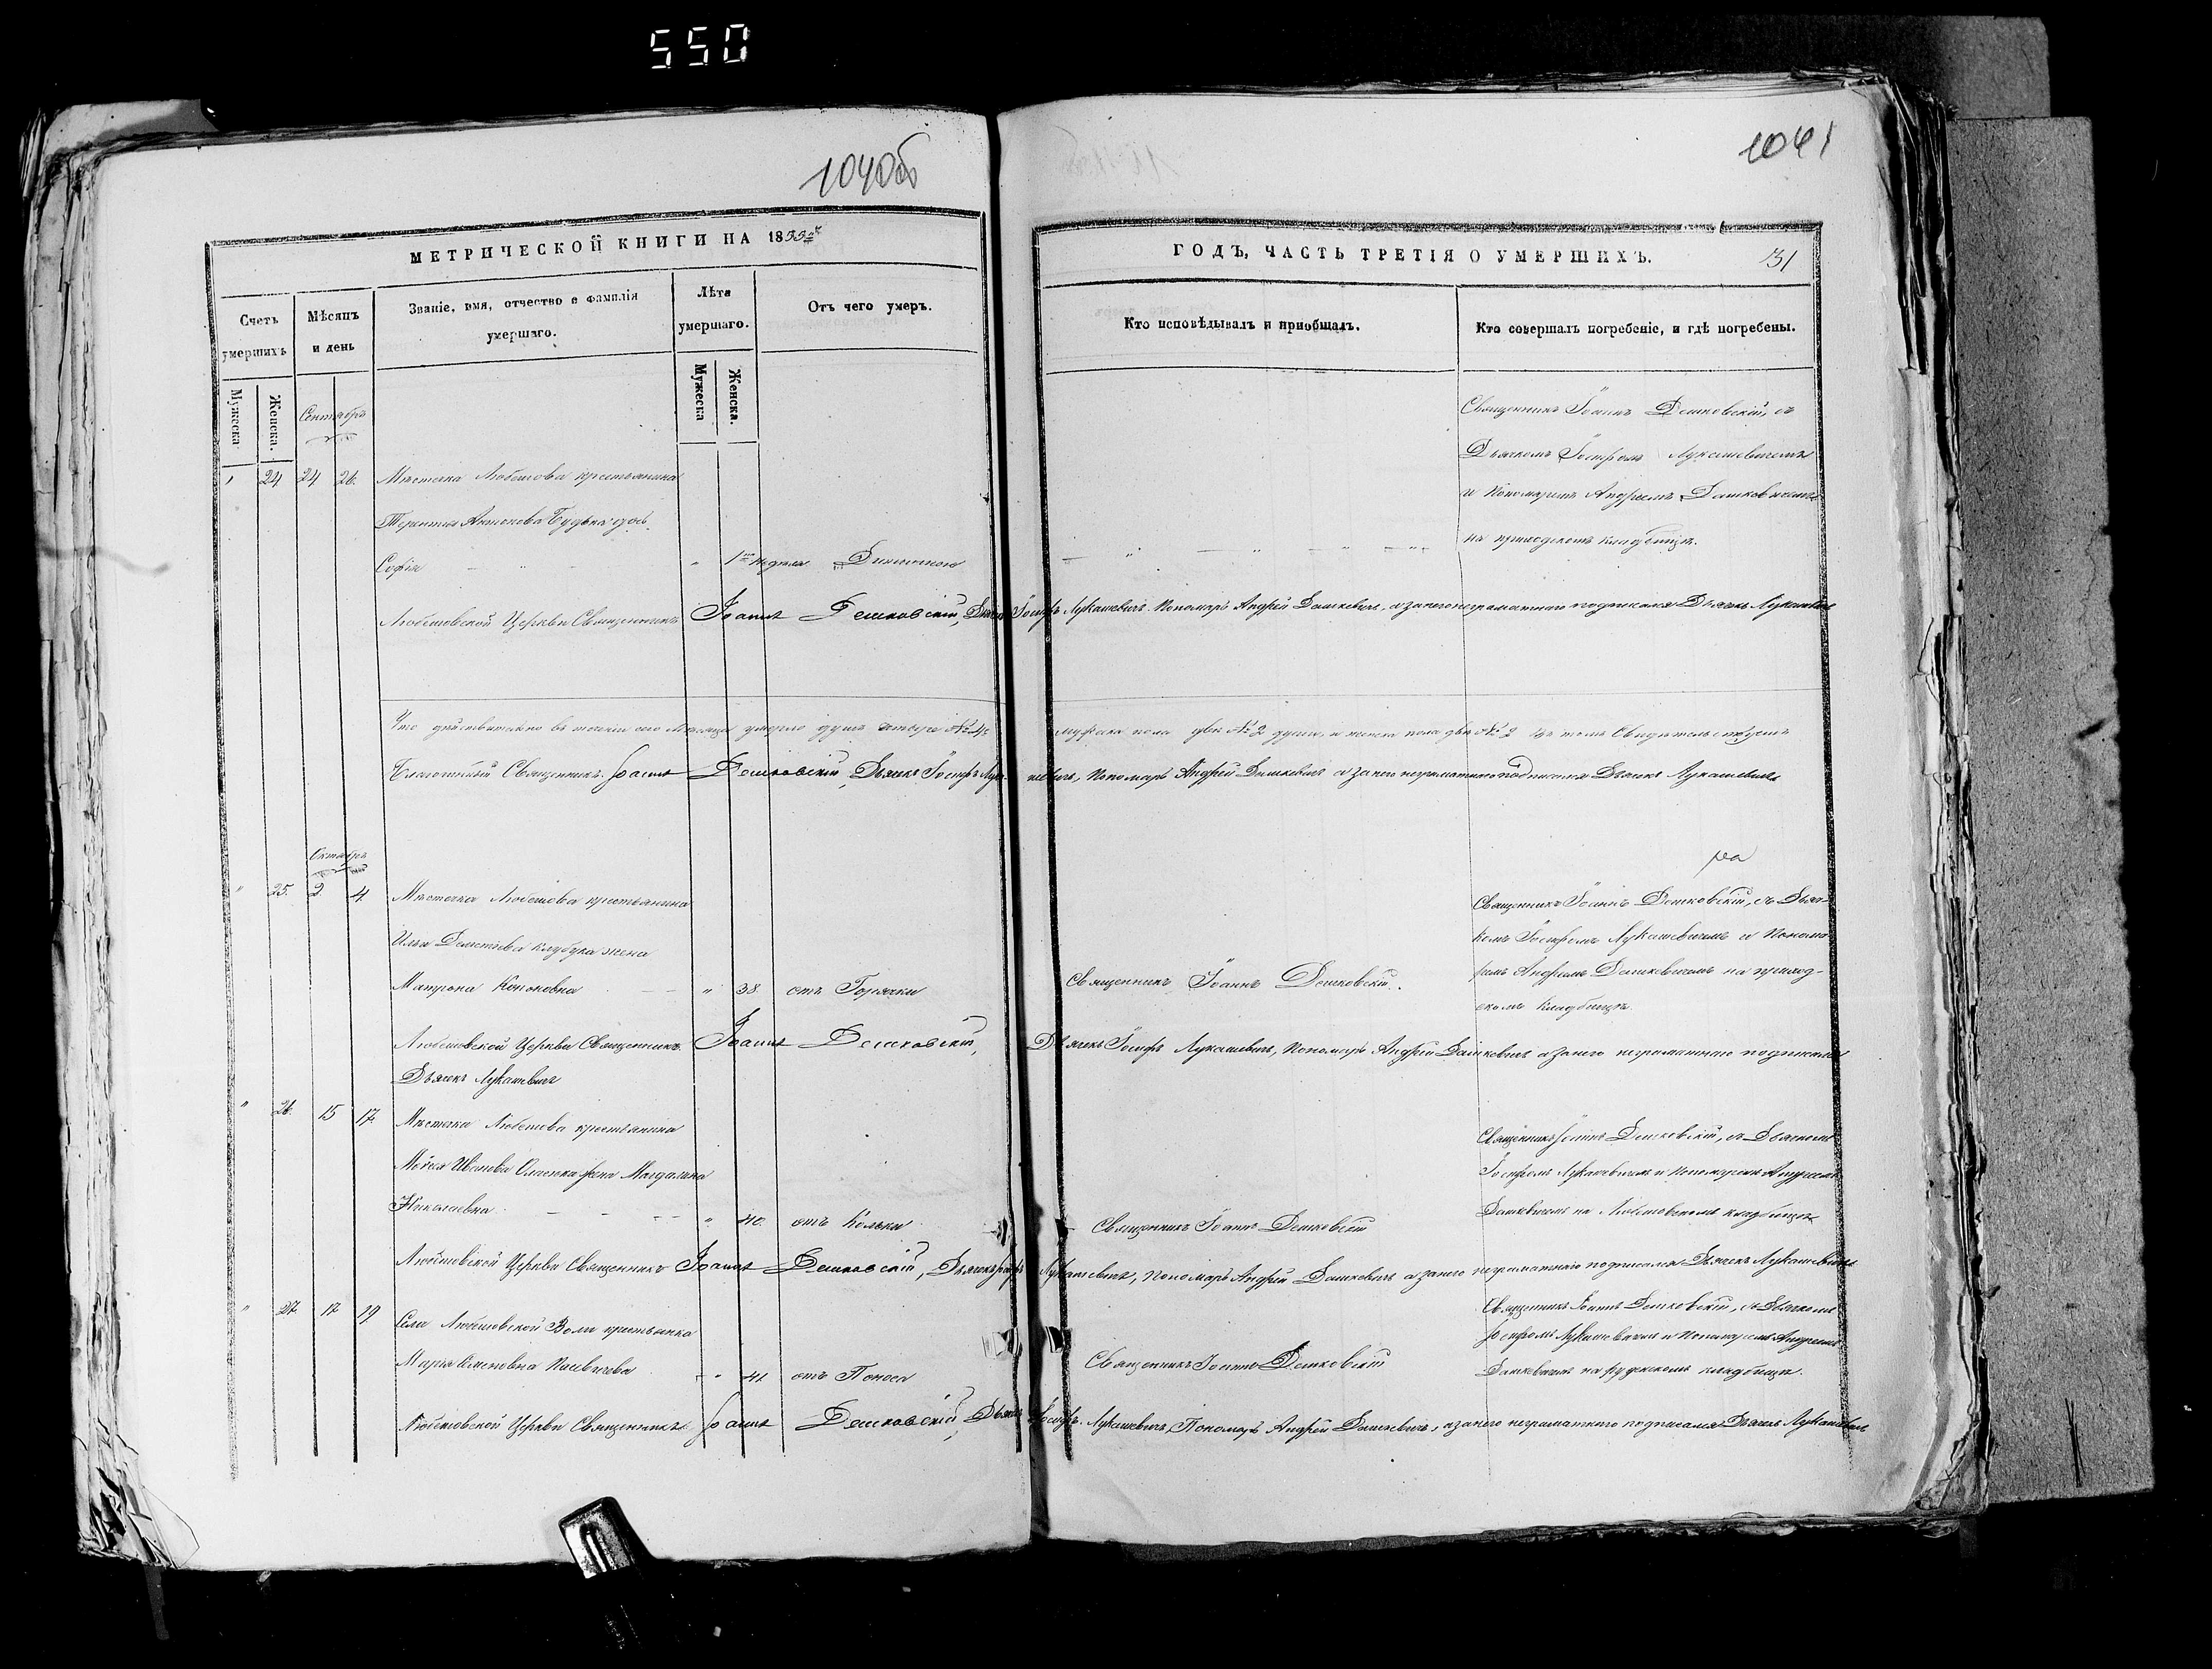 550
1040об
1041
МЕТРИЧЕСКОЙ КНИГИ НА 1855й
ГОДЪ, ЧАСТЬ ТРЕТІЯ О УМЕРШИХЪ.
31
Счетъ умершихъ
Мужеска
Женска.
Мѣсяцъ и день
Званіе, имя, отчество и фамилія
умершаго.
Лѣта
умершаго.
Мужеска
Женска.
Отъ чего умеръ.
Кто исповѣдывалъ и пріобщалъ.
Кто совершалъ погребеніе, и гдѣ погребены.
Сентябрь
24 24 26. Мѣстечка Любешова крестьянина
Терентія Антонова дочь
Софія 1 недѣля
Священникъ Іоаннъ Дешковскій, съ
Дьячкомъ Іосифомъ Лукашевичемъ
и Пономаремъ Андреемъ Дашкевичемъ
на приходскомъ кладбищѣ.
Любешовской Церкви Священникъ Іоаннъ Дешковскій, Дьячекъ Іосифъ Лукашевичъ. Пономарь Андрей Дашкевичъ, а за него неграматнаго подписался Дьячекъ Лукашевичъ
Что действительно въ теченіи сего месяца умерло душъ четыре № 4. мужеска пола две № 2 души, и женска пола две № 2 въ томъ Свидетельствуемъ
Священникъ Іоаннъ Дешковскій, Дьячекъ Іосифъ Лукашевичъ, Пономарь Андрей Дашкевичъ а за него неграматнаго подписался Дьячекъ Лукашевичъ
Октябрь
25. 2. 4. Мѣстечка Любешова крестьянина
Ильи жена
Матрона Кононовна 38. отъ Горячки
Священникъ Іоаннъ Дешковскій.
Священникъ Іоаннъ Дешковскій, съ Дьяч-
комъ Іосифомъ Лукашевичемъ и Понома
ремъ Андреемъ Дашкевичемъ на приход-
скомъ кладбищѣ.
Любешовской Церкви Священникъ Іоаннъ Дешковскій, Дьячекъ Іосифъ Лукашевичъ, Пономарь Андрей Дашкевичъ а за него неграматнаго подписался
Дьячекъ Лукашевичъ
26. 15 17. Мѣстечка Любешова крестьянина
Мойсея Иванова жена Магдалина
Николаевна 40. отъ Кольки
Священникъ Іоаннъ Дешковскій
Священникъ Іоаннъ Дешковскій, съ Дьячкомъ
Іосифомъ Лукашевичемъ и Пономаремъ Андреемъ
Дашкевичемъ на Любешовскомъ кладбищѣ
Любешовской Церкви Священникъ Іоаннъ Дешковскій, Дьячекъ Іосифъ Лукашевичъ, Пономарь Андрей Дашкевичъ а за него неграматнаго подписался Дьячекъ Лукашевичъ
27. 17 19 Села Любешовской Воли крестьянка
Марія 41 отъ Поноса
Священникъ Іоаннъ Дешковскій
Священникъ Іоаннъ Дешковскій, съ Дьячкомъ
Іосифомъ Лукашевичемъ и Пономаремъ Андреемъ
Дашкевичемъ на кладбищѣ.
Любешовской Церкви Священникъ Іоаннъ Дешковскій, Дьячекъ Іосифъ Лукашевичъ, Пономарь Андрей Дашкевичъ, а за него неграматнаго подписался Дьячекъ Лукашевичъ